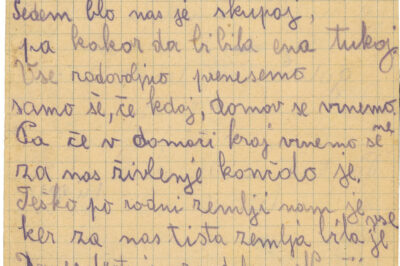 Sedem blo nas je skupaj,
pa kakor da bi bila ena tukaj
Vse radovoljno prenesemo
samo še, če kdaj, domov se vrnemo.
Pa če v domači kraj vrnemo se ne
za nas življenje končdo je.
Teško po rodni zemlji nam je
ker za nas tista zemlja bila je vse